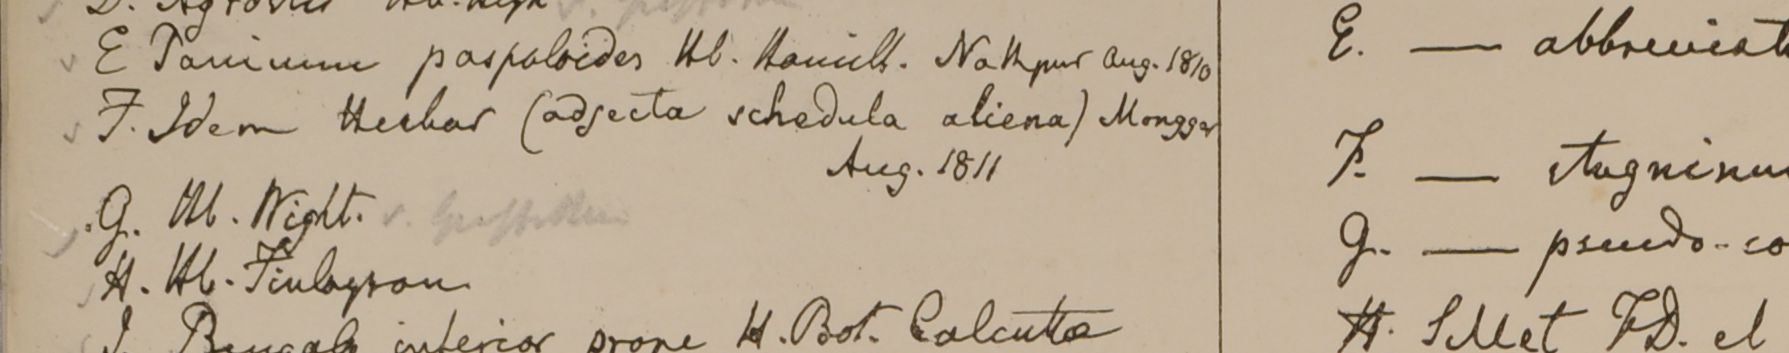 D. Agrostis Hb. Heyn
E Panicum paspaloides Hb. Hamilt. Nathpur Aug. 1810
F. Idem Herbar (adjecta schedula aliena) Mongger
Aug. 1811
G. Hb. Wight.
H. Hb. Finlayson
I. Bengala inferior prope H. Bot. Calcutta
E. — abbreviat
F. —
G. — pseudo-co
H. Sillet F.D. el